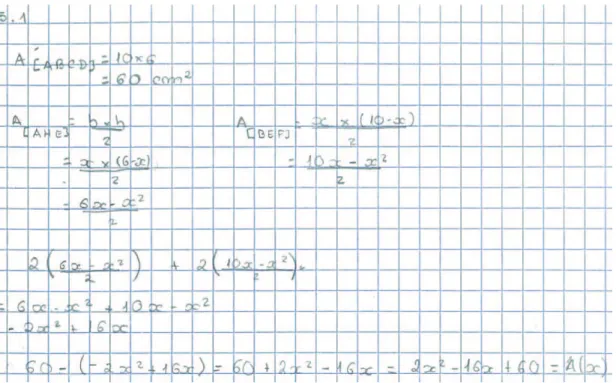 3.1
A[ABCD] = 10×6
= 60 cm²
A[AHE] = b×h/2 A[BEF] = x × (10-x)/2
= x × (6-x)/2 = 10x - x²/2
= 6x - x²/2
2(6x - x²/2) + 2(10x - x²/2) =
= 6x - x² + 10x - x²
- 2x² + 16x
60 - (-2x² + 16x) = 60 + 2x² - 16x = 2x² - 16x + 60 = A(x)